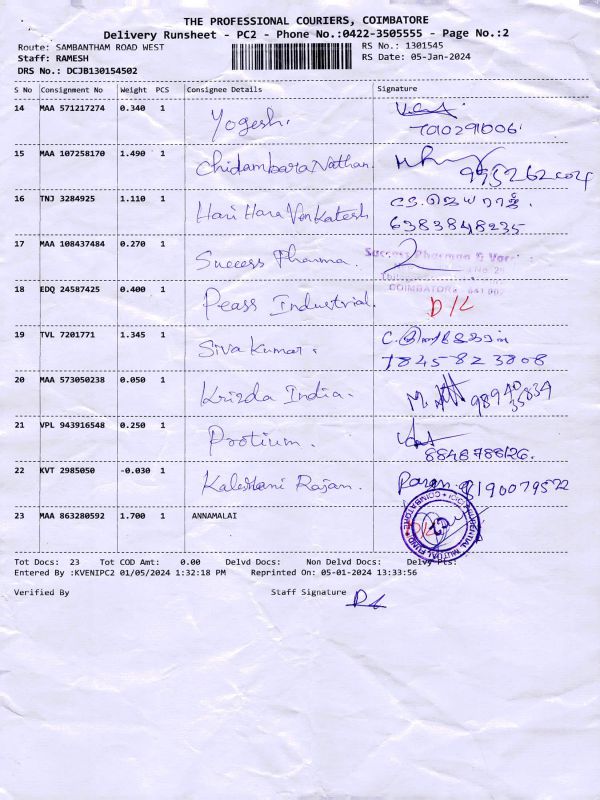 THE PROFESSIONAL COURIERS, COIMBATORE
Delivery Runsheet - PC2 - Phone No.:0422-3505555 - Page No.:2
Route: SAMBANTHAM ROAD WEST RS No.: 1301545
Staff: RAMESH RS Date: 05-Jan-2024
DRS No.: DCJB130154502
S No Consignment No Weight PCS Consignee Details Signature
14 MAA 571217274 0.340 1 Yogesh.
7010291006
15 MAA 107258170 1.490 1 ChidambaraNathan.
16 TNJ 3284925 1.110 1 Hari Hara Venkatesh
6383848235
17 MAA 108437484 0.270 1 Success Pharma. Success Pharmaa &
COIMBATORE
18 EDQ 24587425 0.400 1 Peass Industrial. D/L
19 TVL 7201771 1.345 1 Siva Kumar.
7845823808
20 MAA 573050238 0.050 1 Krizda India.
98940
35834
21 VPL 943916548 0.250 1 Protium.
8848788126.
22 KVT 2985050 -0.030 1 Kaleshani Rajan. 8190079522
23 MAA 863280592 1.700 1 ANNAMALAI
COIMBATORE
Tot Docs: 23 Tot COD Amt: 0.00 Delvd Docs: Non Delvd Docs: Delvy Pts:
Entered By :KVENIPC2 01/05/2024 1:32:18 PM Reprinted On: 05-01-2024 13:33:56
Verified By Staff Signature